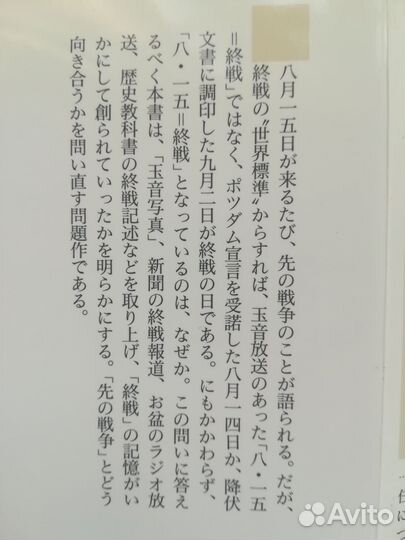 八月一五日が来るたび、先の戦争のことが語られる。だが、
終戦の〝世界標準〟からすれば、玉音放送のあった「八・一五
＝終戦」ではなく、ポツダム宣言を受諾した八月一四日か、降伏
文書に調印した九月二日が終戦の日である。にもかかわらず、
「八・一五＝終戦」となっているのは、なぜか。この問いに答え
るべく本書は、「玉音写真」、新聞の終戦報道、お盆のラジオ放
送、歴史教科書の終戦記述などを取り上げ、「終戦」の記憶がい
かにして創られていったかを明らかにする。「先の戦争」とどう
向き合うかを問い直す問題作である。
Avito